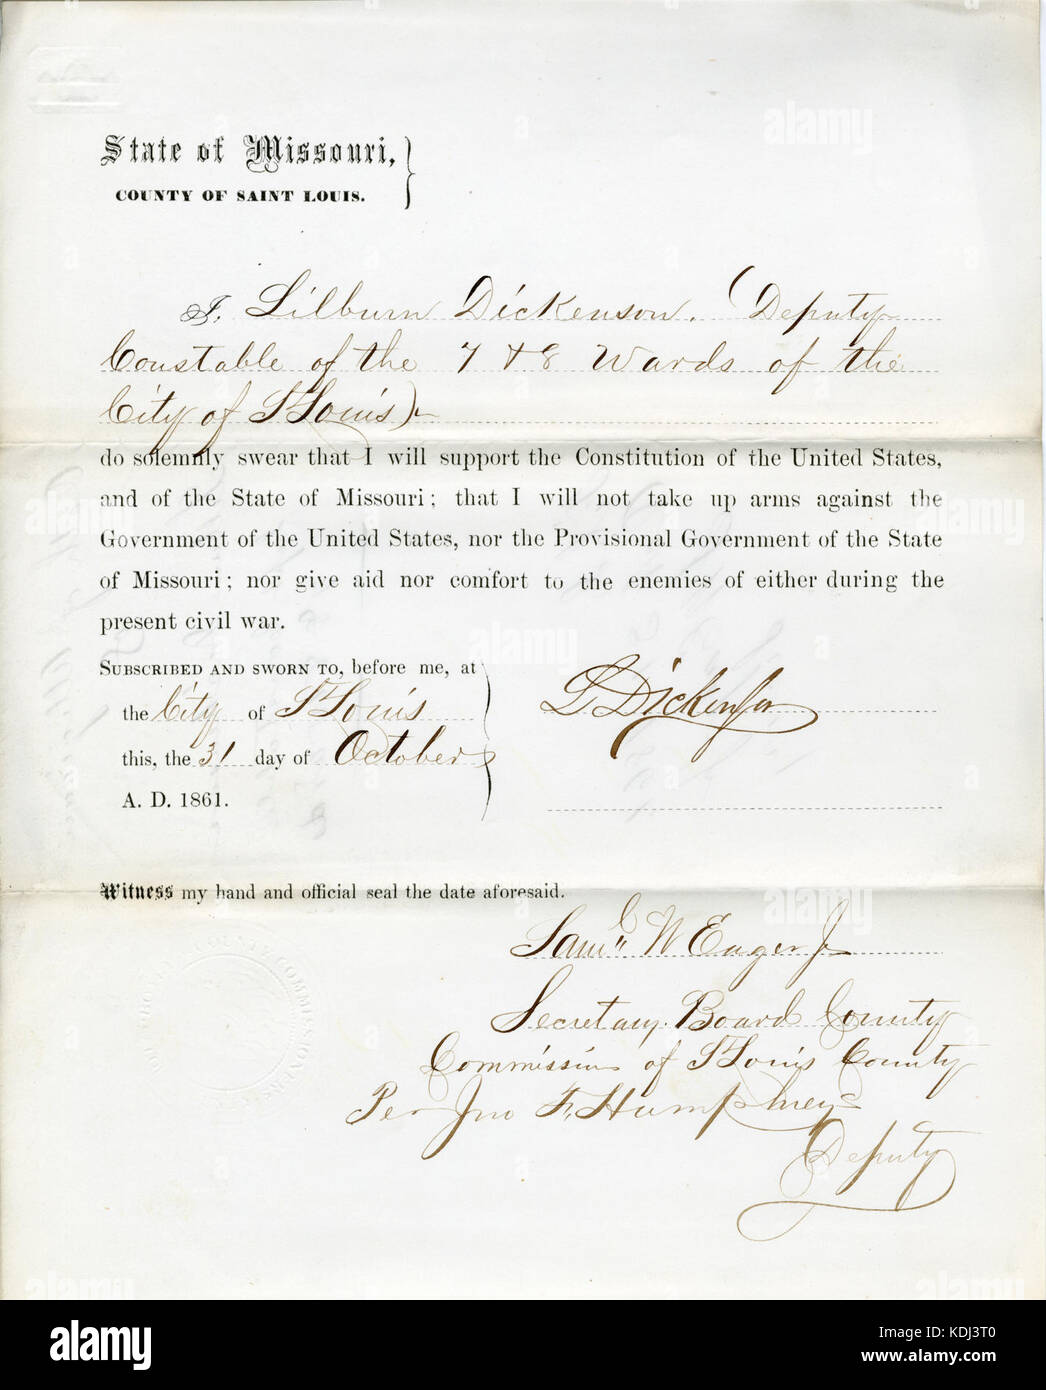 State of Missouri,
COUNTY OF SAINT LOUIS.
I, Lilburn Dickenson. (Deputy
Constable of the 7 & 8 Wards of the
City of St Louis)
do solemnly swear that I will support the Constitution of the United States,
and of the State of Missouri; that I will not take up arms against the
Government of the United States, nor the Provisional Government of the State
of Missouri; nor give aid nor comfort to the enemies of either during the
present civil war.
SUBSCRIBED AND SWORN TO, before me, at
the City of St Louis
this, the 31 day of October
A. D. 1861.
L Dickenson
Witness my hand and official seal the date aforesaid.
Saml W Eager Jr
Secretary Board County
Commission of St Louis County
Per Jno F. Humphreys
Deputy
alamy
Image ID: KDJ3T0
www.alamy.com